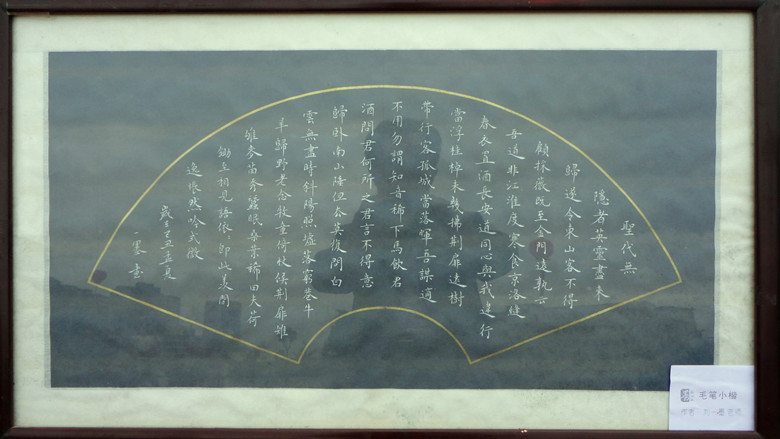 聖代無
隱者英靈盡來
歸遂令東山客不得
顧採薇既至金門遠孰云
吾道非江淮度寒食京洛縫
春衣置酒長安道同心與我違行
當浮桂棹未幾拂荆扉遠樹
帶行客孤城當落暉吾謀適
不用勿謂知音稀下馬飲君
酒問君何所之君言不得意
歸卧南山陲但去莫復問白
雲無盡時斜陽照墟落窮巷牛
羊歸野老念牧童倚杖候荆扉雉
雊麥苗秀蠶眠桑葉稀田夫荷
鋤至相見語依依即此羡閒
逸悵然吟式微
歲辛丑孟夏
一墨書
毛笔小楷
作者: